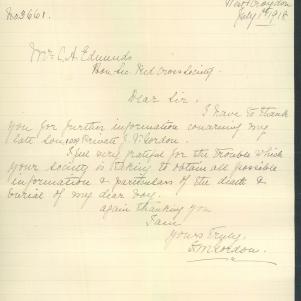 No 3661.
West Croydon
July 1st 1918
Mr C. A. Edmunds
Hon Sec Red Cross Society.
Dear Sir.
I have to thank
you for further information concerning my
late Son 1039 Private J. V. Gordon.
I feel very grateful for the trouble which
your society is taking to obtain all possible
information & particulars of the death &
burial of my dear boy.
again thanking you
I am
Yours truly.
Gordon.